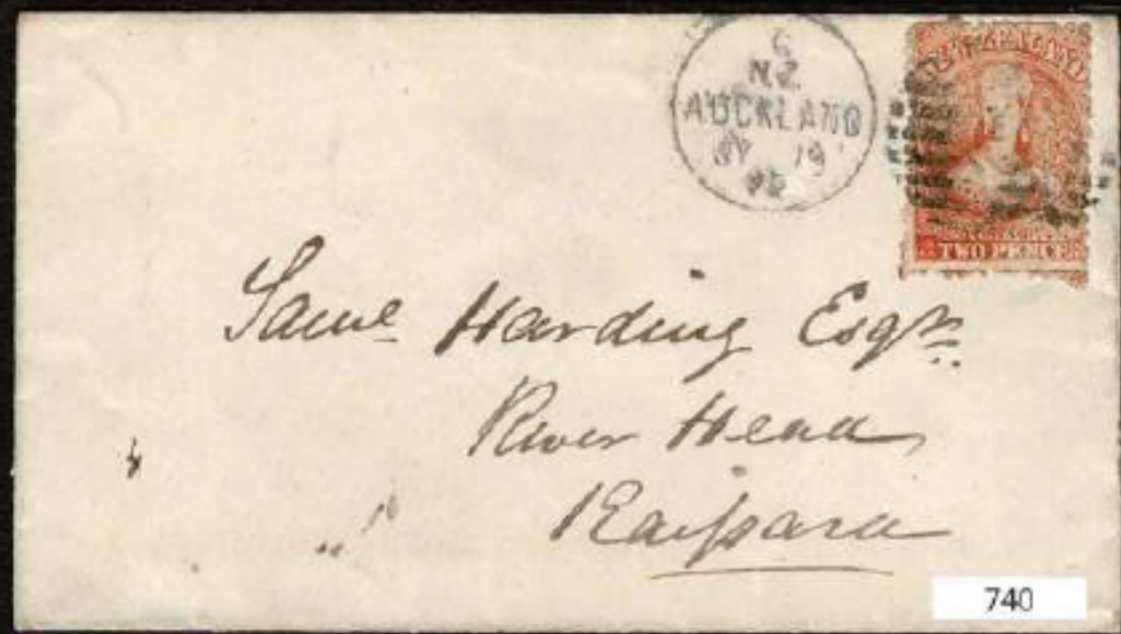 N.Z
AUCKLAND
19
TWO PENCE
Saml Harding Esqr.
River Head
Kaipara
740